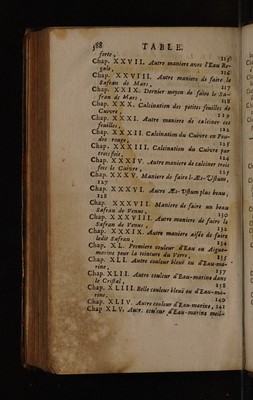 588 TABLE.
forte, 115
Chap. XXVII. Autre maniere avec l'Eau Re-
gale, 116
Chap. XXVIII. Autre maniere de faire le
Safran de Mars, 117
Chap. XXIX. Dernier moyen de faire le Sa-
fran de Mars, 118
Chap. XXX. Calcination des petites feuilles de
Cuivre, 119
Chap. XXXI. Autre maniere de calciner ces
feuilles, 122
Chap. XXXII. Calcination du Cuivre en Pou-
dre rouge,
Chap. XXXIII. Calcination du Cuivre par
trois fois, 124
Chap. XXXIV. Autre maniere de calciner trois
fois le Cuivre,
Chap. XXXV. Maniere de faire l'Æs-Ustum,
127
Chap. XXXVI. Autre Æs-Ustum plus beau,
128
Chap. XXXVII. Maniere de faire un beau
Safran de Venus, 130
Chap. XXXVIII. Autre maniere de faire le
Safran de Venus, 132
Chap. XXXIX. Autre maniere aisée de faire
ledit Safran, 134
Chap. XL. Premiere couleur d'Eau ou Aigue-
marine pour la teinture du Verre, 135
Chap. XLI. Autre couleur bleuë ou d'Eau-ma-
rine, 137
Chap. XLII. Autre couleur d'Eau-marine dans
le Cristal, 138
Chap. XLIII. Belle couleur bleuë ou d'Eau-ma-
rine, 140
Chap. XLIV. Autre couleur d'Eau-marine, 141
Chap. XLV. Autre couleur d'Eau-marine meil-